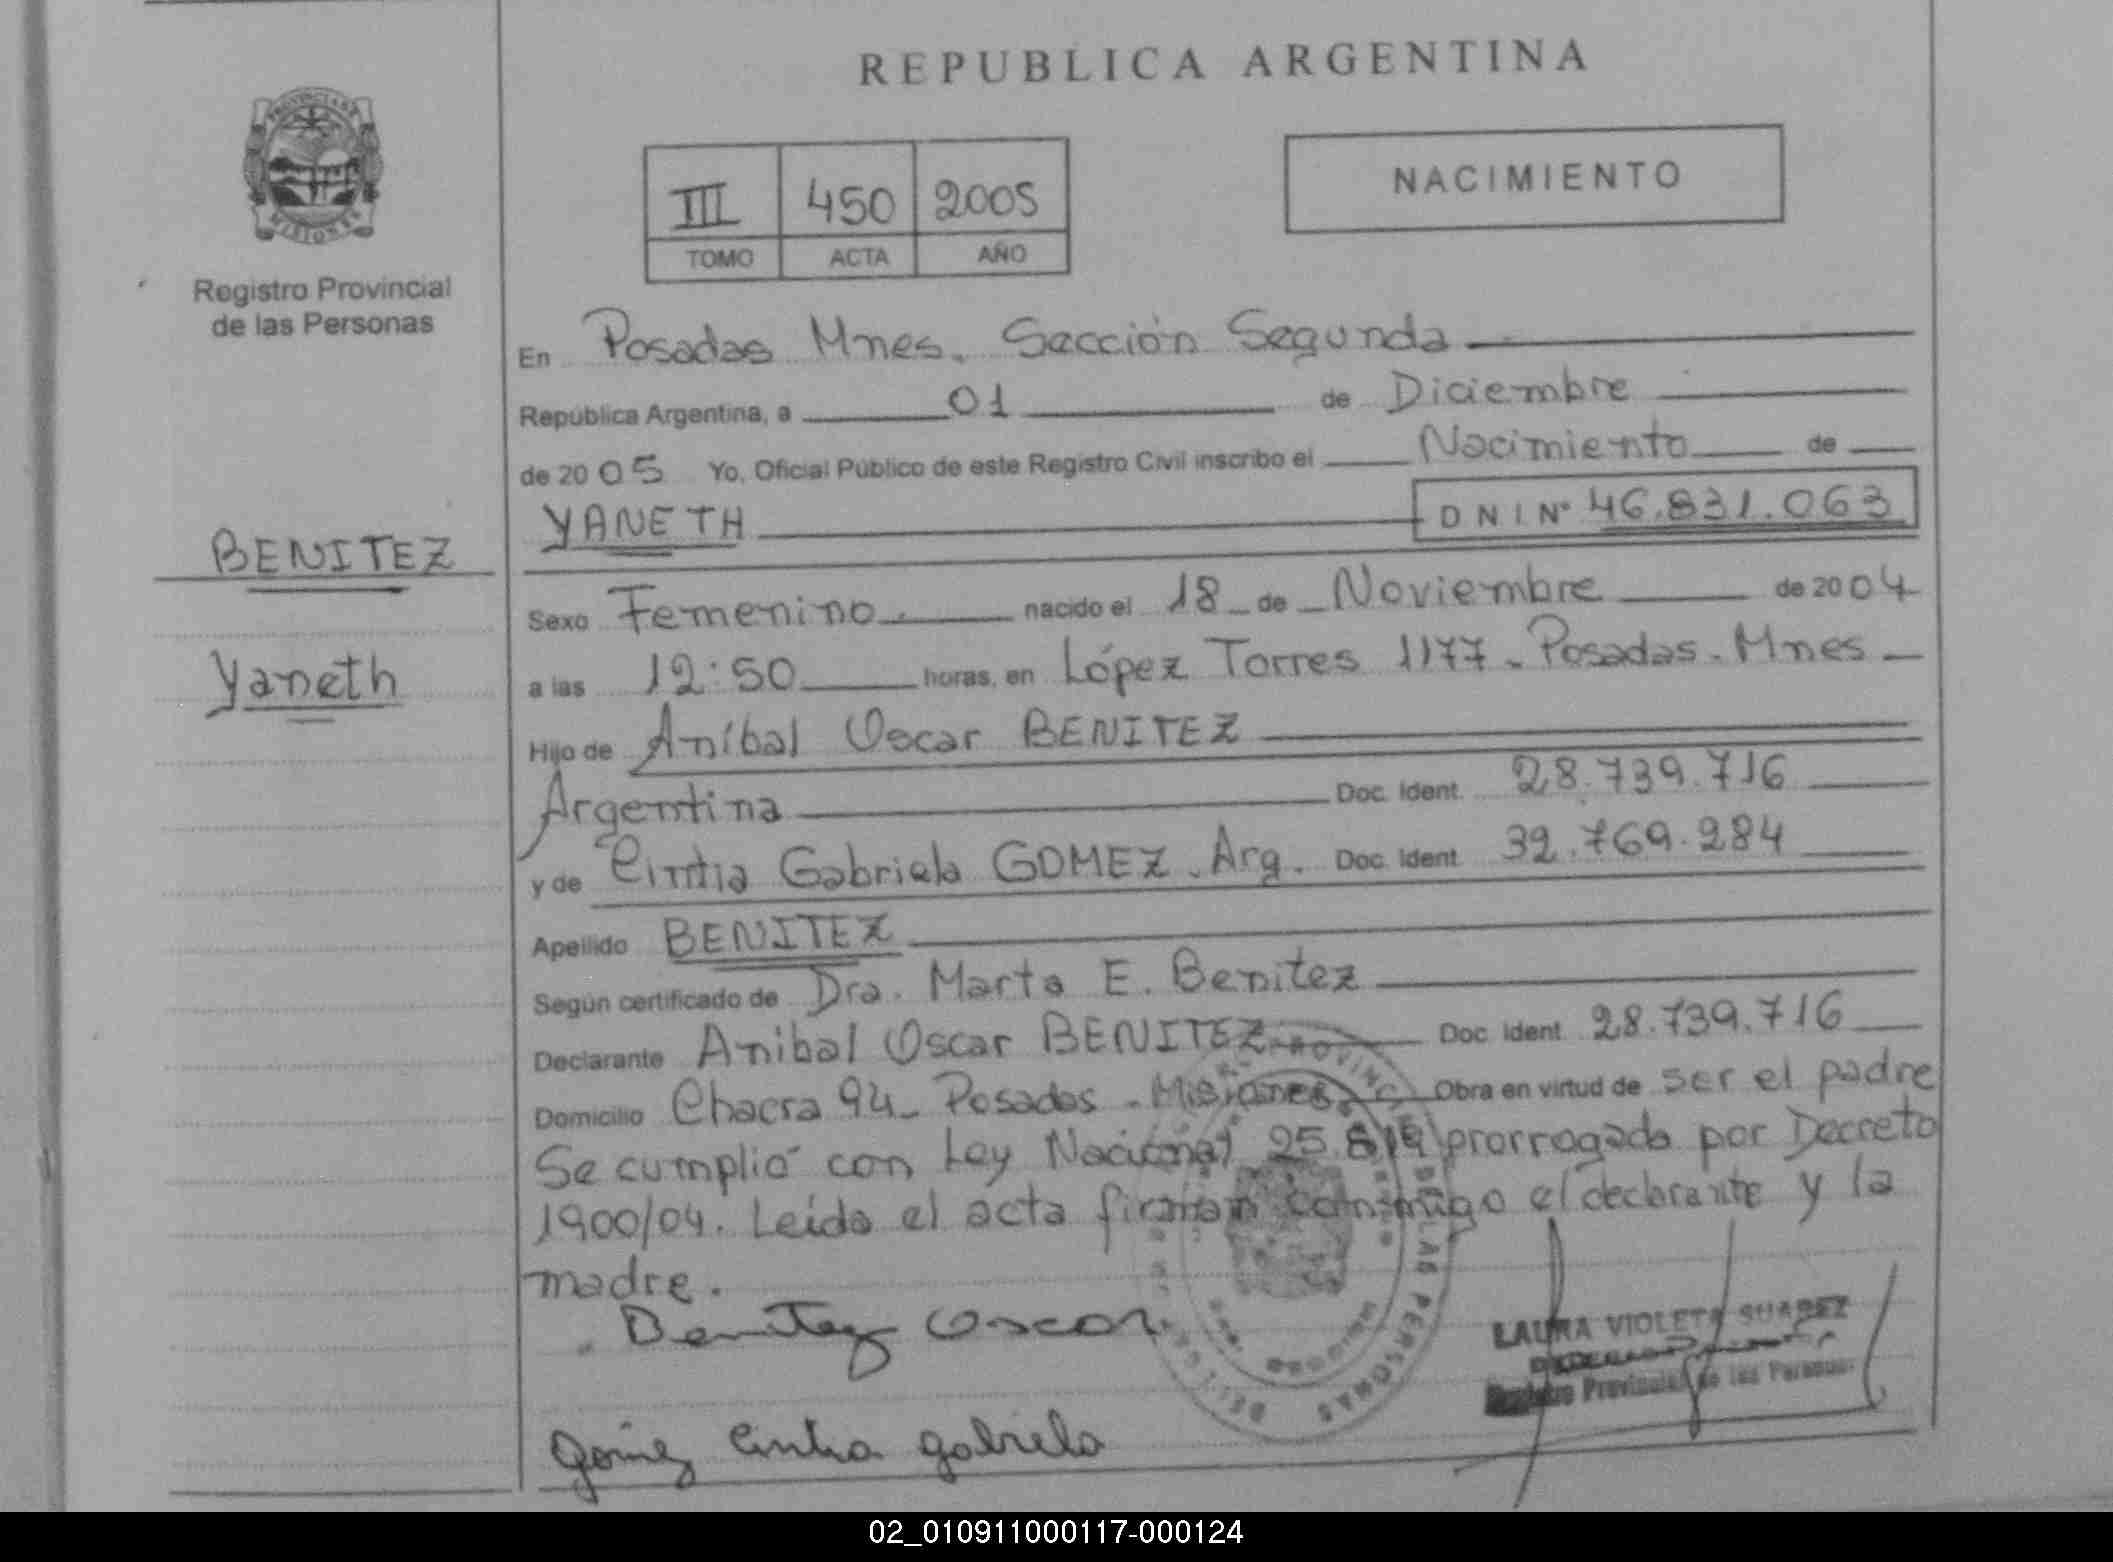 REPUBLICA ARGENTINA
PROVINCIA DE
MISIONES
Registro Provincial
de las Personas
III 450 2005
TOMO ACTA AÑO
NACIMIENTO
BENITEZ
Yaneth
En Posadas Mnes. Sección Segunda
República Argentina, a 01 de Diciembre
de 2005 Yo, Oficial Público de este Registro Civil inscribo el Nacimiento de
YANETH DNI Nº 46.831.063
Sexo Femenino. nacido el 18 de Noviembre de 2004
a las 12:50 horas, en López Torres 1177 - Posadas - Mnes
Hijo de Aníbal Oscar BENITEZ
Argentina Doc. Ident. 28.739.716
y de Cintia Gabriela GOMEZ. Arg. Doc. Ident. 32.769.284
Apellido BENITEZ
Según certificado de Dra. Marta E. Benitez
Declarante Anibal Oscar BENITEZ Doc. Ident. 28.739.716
Domicilio Chacra 94 - Posadas - Misiones Obra en virtud de ser el padre
Se cumplió con Ley Nacional 25.819 prorrogada por Decreto
1900/04. Leída el acta firman conmigo el declarante y la
madre.
Benitez Oscar
LAURA VIOLETA SUAREZ
Registro Provincial de las Personas
Gomez Cintia gabriela
LAS PERSONAS
02_010911000117-000124